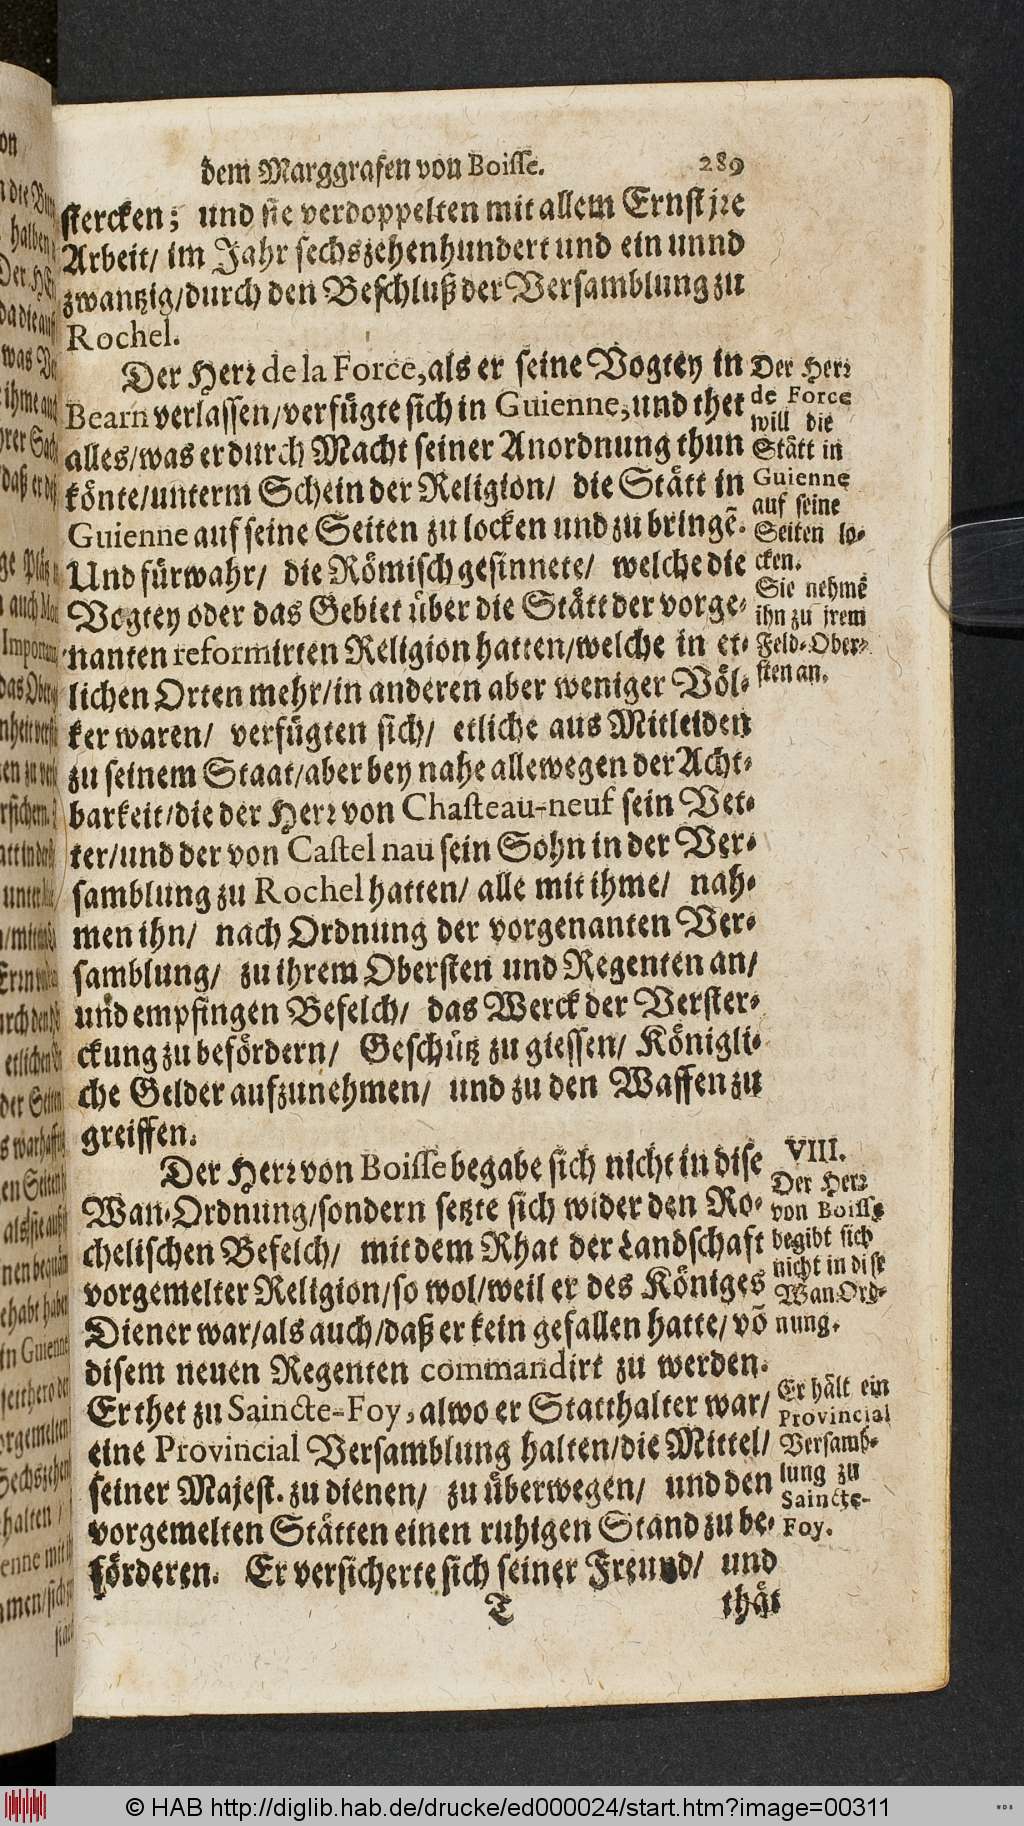 dem Marggrafen von Boisse. 289
stercken; und sie verdoppelten mit allem Ernst jre
Arbeit/ im Jahr sechszehenhundert und ein unnd
zwantzig/durch den Beschluß der Versamblung zu
Rochel.
Der Herr de la Force, als er seine Vogtey in
Bearn verlassen/verfügte sich in Guienne, und thet
alles/was er durch Macht seiner Anordnung thun
könte/unterm Schein der Religion/ die Stätt in
Guienne auf seine Seiten zu locken und zu bringẽ.
Und fürwahr/ die Römisch gesinnete/ welche die
Vogtey oder das Gebiet über die Stätt der vorge-
nanten reformirten Religion hatten/welche in et-
lichen Orten mehr/in anderen aber weniger Völ-
ker waren/ verfügten sich/ etliche aus Mitleiden
zu seinem Staat/aber bey nahe allewegen der Acht-
barkeit/die der Herr von Chasteau-neuf sein Vet-
ter/und der von Castelnau sein Sohn in der Ver-
samblung zu Rochel hatten/ alle mit ihme/ nah-
men ihn/ nach Ordnung der vorgenanten Ver-
samblung/ zu ihrem Obersten und Regenten an/
und empfingen Befelch/ das Werck der Verster-
ckung zu befördern/ Geschütz zu giessen/ Königli-
che Gelder aufzunehmen/ und zu den Waffen zu
greiffen.
Der Herr von Boisse begabe sich nicht in dise
Wan-Ordnung/sondern setzte sich wider den Ro-
chelischen Befelch/ mit dem Rhat der Landschaft
vorgemelter Religion/so wol/weil er des Königes
Diener war/als auch/daß er kein gefallen hatte/ võ
disem neuen Regenten commandirt zu werden.
Er thet zu Saincte-Foy, alwo er Statthalter war/
eine Provincial Versamblung halten/die Mittel/
seiner Majest. zu dienen/ zu überwegen/ und den
vorgemelten Stätten einen ruhigen Stand zu be-
förderen. Er versicherte sich seiner Freund/ und
T thät
Der Herr
de Force
will die
Stätt in
Guienne
auf seine
Seiten lo-
cken.
Sie nehmẽ
ihn zu jrem
Feld-Ober-
sten an.
VIII.
Der Herr
von Boisse
begibt sich
nicht in dise
Wan-Ord-
nung.
Er hält ein
Provincial
Versamb-
lung zu
Saincte-
Foy.
© HAB http://diglib.hab.de/drucke/ed000024/start.htm?image=00311